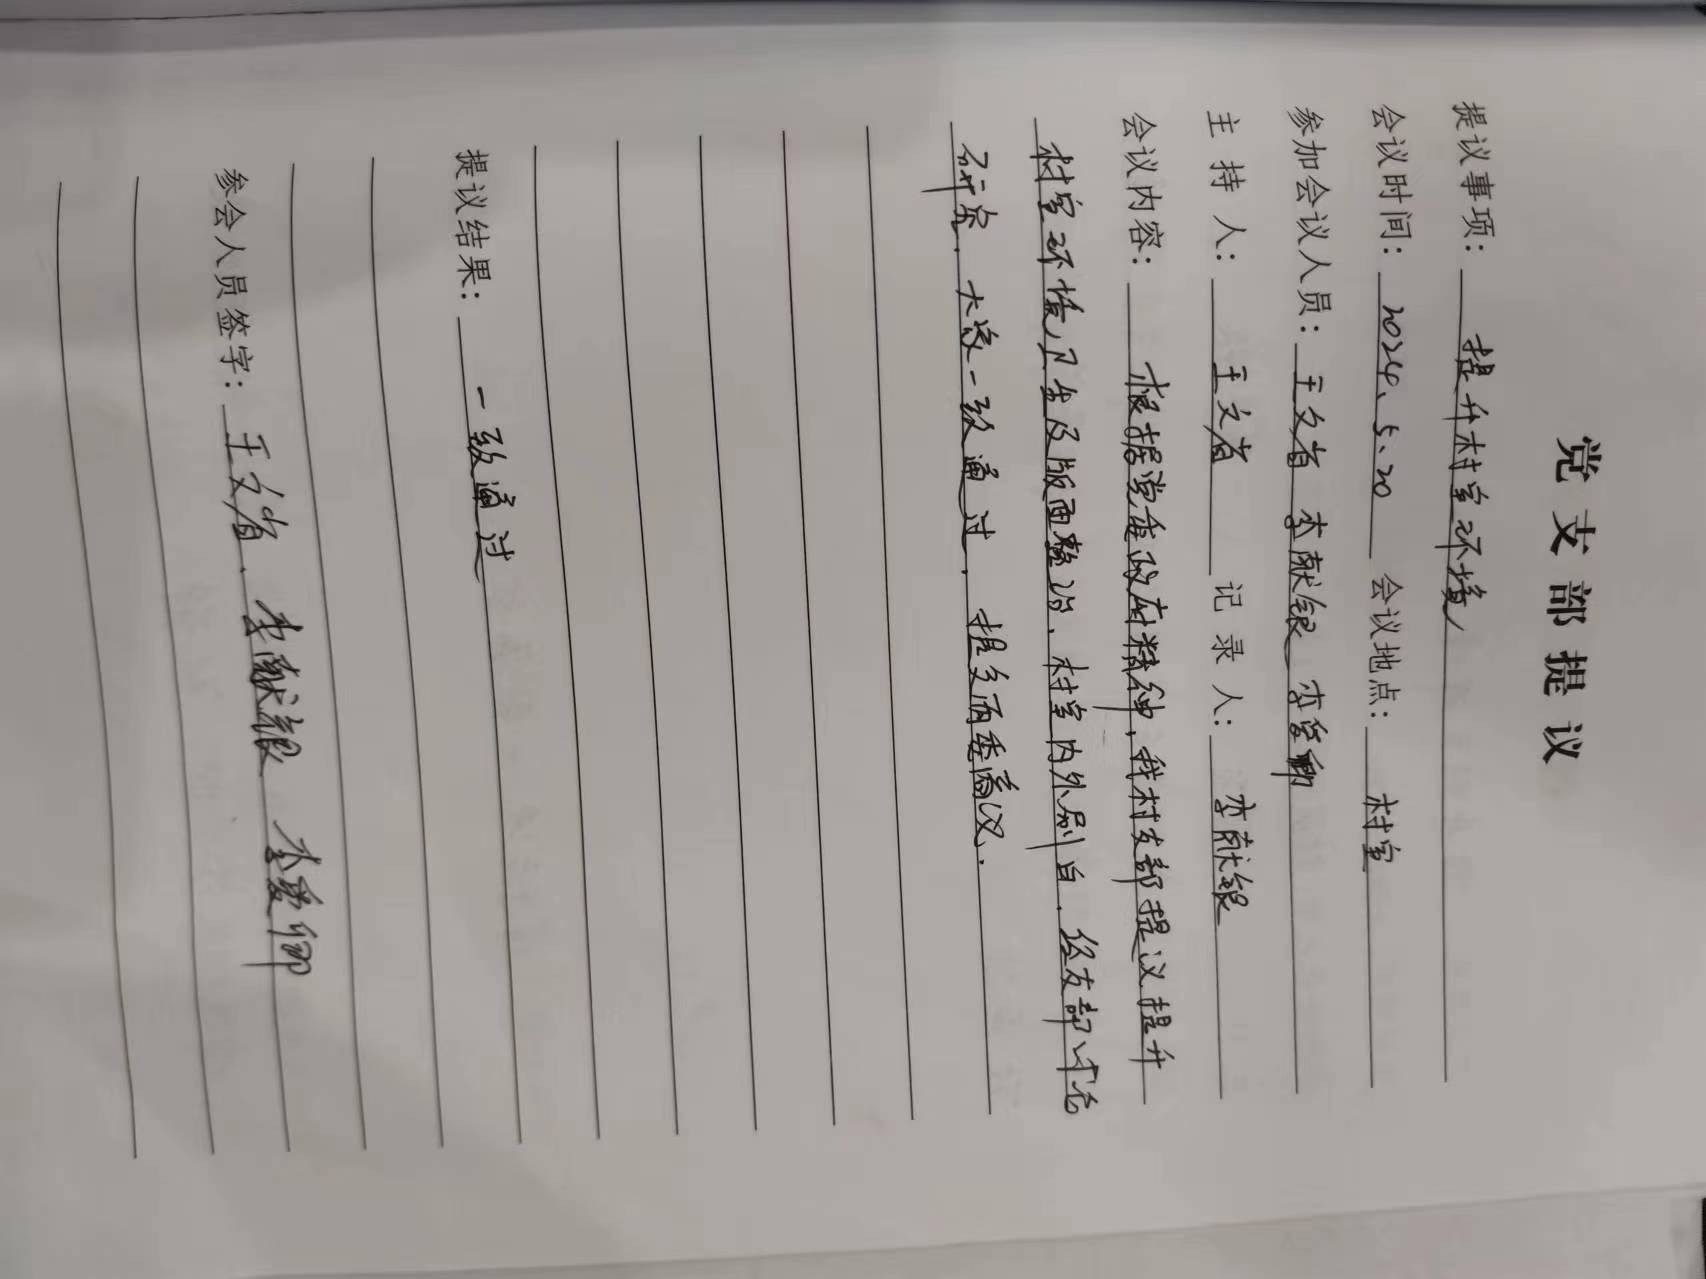 党支部提议
提议事项：提升村室环境
会议时间：2024、5、20 会议地点：村室
参加会议人员：王文省 李献银 李爱卿
主持人：王文省 记录人：李献银
会议内容：根据党委政府精神，我村支部提议提升
村室环境卫生及版面整治，村室内外刷白，经支部讨论
研究，大家一致通过，提交两委商议．
提议结果：一致通过
参会人员签字：王文省．李献银 李爱卿